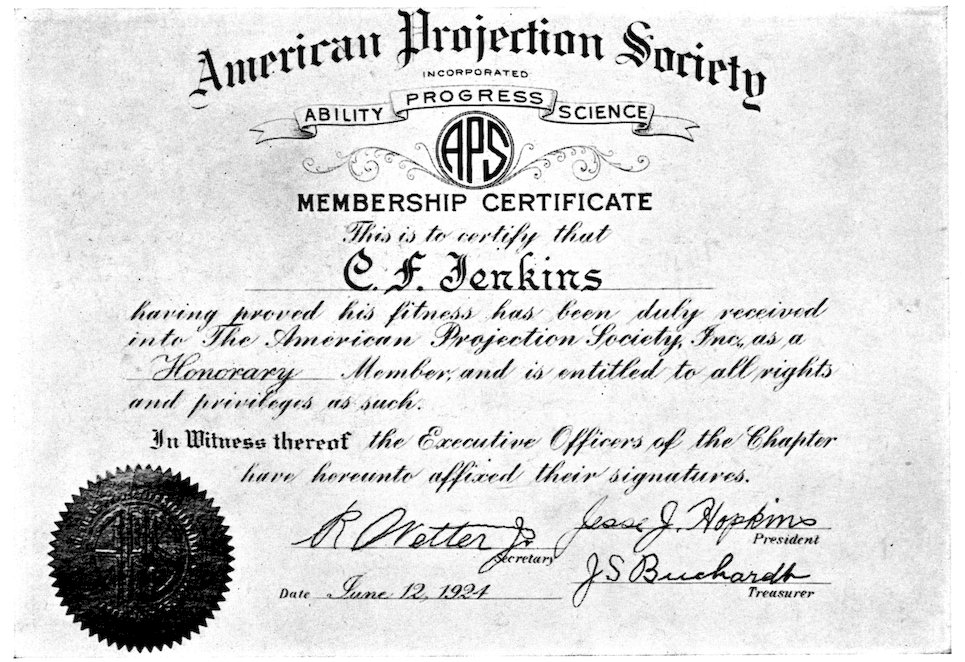 American Projection Society
INCORPORATED
ABILITY PROGRESS SCIENCE
APS
MEMBERSHIP CERTIFICATE
This is to certify that
C. F. Jenkins
having proved his fitness has been duly received
into The American Projection Society, Inc., as a
Honorary Member, and is entitled to all rights
and privileges as such.
In Witness thereof the Executive Officers of the Chapter
have hereunto affixed their signatures.
R Wetter Jr
Secretary
Jesse J. Hopkins
President
Date June 12, 1924
J S Buchardt
Treasurer